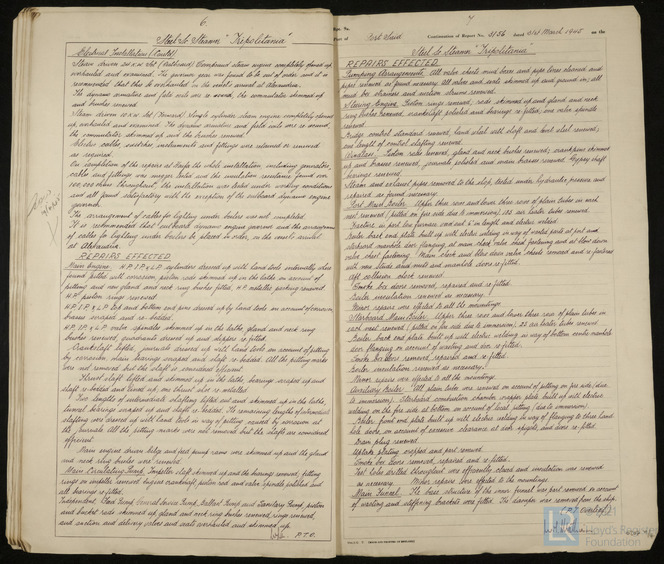 6.
Steel Sc Steamer "Tripolitania"
Electrical Installation (Contd)
Steam driven 24 KW Set (Outboard) Compound steam engine completely opened up
overhauled and examined. The governor gear was found to be out of order and it is
recommended that this be overhauled on the vessel's arrival at Alexandria.
The dynamo armature and field coils were re wound, the commutator skimmed up
and brushes renewed.
Steam driven 10 KW Set (Forward) Single cylinder steam engine completely opened
up overhauled and examined. The dynamo armature and field coils were re wound,
the commutator skimmed up and the brushes renewed.
Electric cables, switches, instruments and fittings was returned or renewed
as required.
On completion of the repairs at Haifa the whole installation including generators,
cables and fittings was megger tested and the insulation resistance found over
100,000 ohms throughout, the installation was tested under working conditions
and all found satisfactory with the exception of the outboard dynamo engine
governor.
The arrangement of cables for lighting under boilers was not completed.
It is recommended that outboard dynamo engine governor and the arrangement
of cables for lighting under boilers be placed in order, on the vessels arrival
at Alexandria.
REPAIRS EFFECTED
Main Engine. H.P. I.P. & L.P. cylinders dressed up with hand tools
found pitted with corrosion, piston rods skimmed up in the lathe on account of
pitting and new gland and neck ring bushes fitted. H.P. metallic packing renewed.
H.P. piston rings renewed.
H.P. I.P. & L.P. top end bottom end pins dressed up by hand tools on account of corrosion
brasses scraped and re-bedded.
H.P. I.P. & L.P. valve spindles skimmed up in the lathe gland and neck ring
bushes renewed, quadrants dressed up and slippers re fitted.
Crankshaft lifted, journals dressed up with hand tools on account of pitting
by corrosion, main bearings scraped and shaft re-bedded. All the pitting marks
were not removed but the shaft is considered efficient.
Thrust shaft lifted and skimmed up in the lathe, bearings scraped and
shaft re-bedded and lined up, the thrust shoe re-metalled.
Two lengths of intermediate shafting lifted out and skimmed up in the lathe,
tunnel bearings scraped up and shaft re-bedded. The remaining lengths of intermediate
shafting was dressed up with hand tools in way of pitting caused by corrosion at
the journals. All the pitting marks were not removed but the shafts are considered
efficient.
Main engine driven bilge and feed pump rams was skimmed up and the gland
and neck ring bushes was renewed.
Main Circulating Pump Impellor shaft skimmed up and the bearings renewed, fitting
rings on impellor renewed. Engine crankshaft, piston rod and valve spindle polished and
all bearings re fitted.
Independent Clean Bilge, General Service Pump, Ballast Pump and Sanitary Pump, piston
and bucket rods skimmed up gland and neck ring bushes renewed, rings renewed,
and suction and delivery valves and seats overhauled and skimmed up.
P.T.O.
7
Port of Port Said Continuation of Report No. 3156 dated 31st March 1945 on the
Steel Sc Steamer "Tripolitania"
REPAIRS EFFECTED
Pumping Arrangements. All valve chests mud boxes and pipe lines cleaned and
pipes renewed as found necessary. All valves and seats skimmed up and ground in; all
mud box strainers and suction strums renewed.
Steering Engine. Piston rings renewed, rods skimmed up and gland and neck
ring bushes renewed, crankshaft polished and bearings re fitted, one valve spindle
renewed.
Bridge control standard renewed, hand wheel with shaft and hand wheel renewed;
one length of control shafting renewed.
Windlass. Piston rods renewed, gland and neck bushes renewed; crankpins skimmed
up and brasses renewed, journals polished and main brasses renewed. Gypsy shaft
bearings renewed.
Steam and exhaust pipes removed to the shop tested under hydraulic pressure and
repaired as found necessary.
Port Main Boiler. Upper three rows and lower three rows of plain tubes in each
nest renewed (pitted on fire side due to immersion), 122 air heater tubes renewed.
Boiler back end plate built up with electric welding in way of wasted parts at port and
starboard manhole door flanging, at main check valve chest fastening and at blow down
valve chest fastening. Main check and blow down valve chests removed and re fastened
with new studs and nuts and manhole doors re fitted.
Aft collision chock renewed.
Smoke box doors removed, repaired and re fitted.
Boiler insulation renewed as necessary.
Minor repairs was effected to all the mountings.
Starboard Main Boiler. Upper three rows and lower three rows of plain tubes in
each nest renewed (pitted on fire side due to immersion), air heater tubes renewed
Boiler back end plate built up with electric welding in way of bottom centre manhole
door flanging on account of wasting and door re fitted.
Smoke box doors removed, repaired and re fitted.
Boiler insulation renewed as necessary.
Minor repairs was effected to all the mountings.
Auxiliary Boiler. All plain tubes was renewed on account of pitting on fire side (due
to immersion). Starboard combustion chamber wrapper plate built up with electric
welding on the fire side at bottom, on account of local pitting (due to immersion).
Boiler front end plate built up with electric welding in way of flanging to three hand
hole doors, on account of excessive clearance at door spigots, and doors re fitted.
Drain plug renewed.
Uptake plating cropped and part renewed.
Smoke box doors removed, repaired and re fitted.
Minor repairs was effected to the mountings.
Main Funnel. The base structure of the inner funnel was part renewed on account
of wasting and stiffening brackets was fitted. The damper was removed from the ship.
Lloyd's Register
Foundation